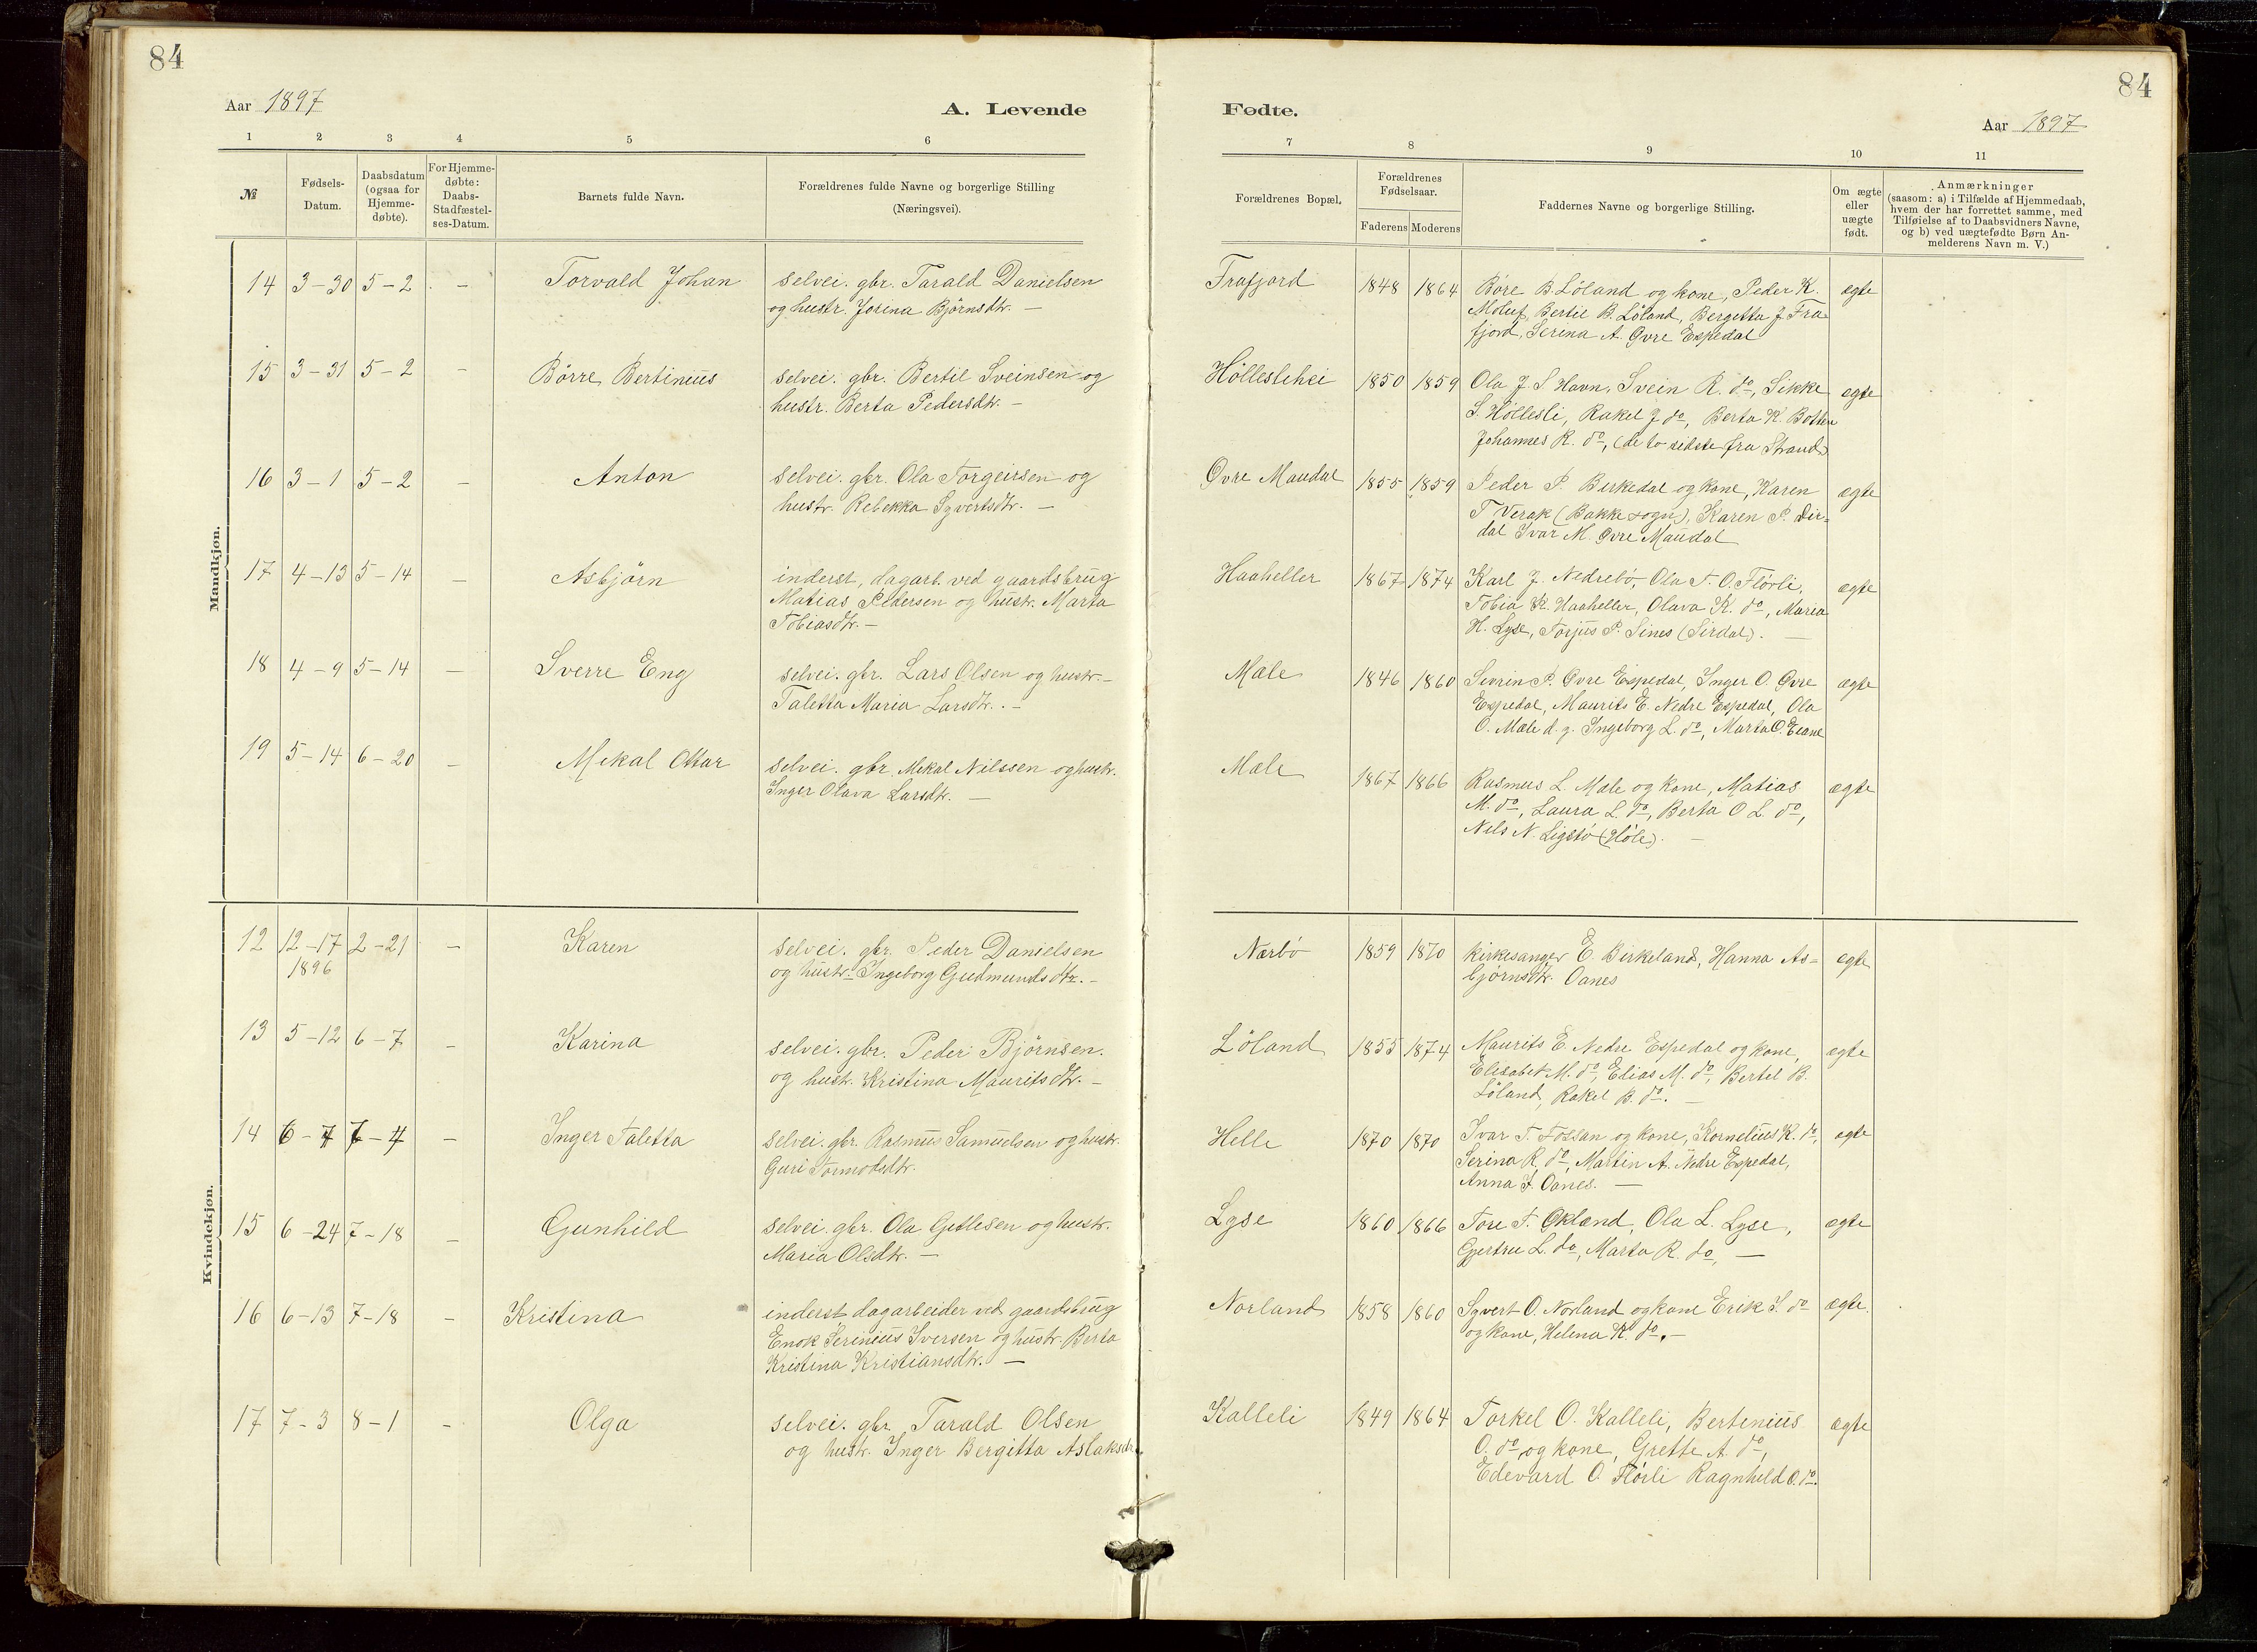 84
84
Aar 1897
A. Levende
Fødte.
Aar 1897
1 2 3 4 5 6 7 8 9 10 11
№
Fødsels-
Datum.
Daabsdatum
(ogsaa for
Hjemme-
døbte).
For Hjemme-
døbte:
Daabs-
Stadfæstel-
ses-Datum.
Barnets fulde Navn.
Forældrenes fulde Navne og borgerlige Stilling
(Næringsvei).
Forældrenes Bopæl.
Forældrenes
Fødselsaar.
Faderens Moderens
Faddernes Navne og borgerlige Stilling.
Om ægte
eller
uægte
født.
Anmærkninger
(saasom: a) i Tilfælde af Hjemmedaab,
hvem der har forrettet samme, med
Tilføielse af to Daabsvidners Navne,
og b) ved uægtefødte Børn An-
melderens Navn m. V.)
Mandkjøn.
14 3-30 5-2 - Torvald Johan
selvei. gbr. Tarald Danielsen
og hustr. Jorina Björnsdtr. -
Frafjord 1848 1864
Böre B. Löland og kone, Peder K.
Molup, Bertil B. Löland, Bergitta J. Fra-
fjord, Serina A. Øvre Espedal
ægte
15 3-31 5-2 - Börre Bertinius
selvei. gbr. Bertil Sveinsen og
hustr. Berta Pedersdtr. -
Hölleslihei 1850 1859
Ola J. S. Havn, Svein R. do, Sikke
S. Höllesli, Rakel J. do, Berta K. Botten
Johannes R. do, (de to sidste fra Strand)
ægte
16 3-1 5-2 - Anton
selvei. gbr. Ola Torgeirsen og
hustr. Rebekka Syvertsdtr. -
Øvre Maudal 1855 1859
Peder P. Birkedal og kone, Karen
T Verak (Bakke sogn), Karen P. Dir-
dal Ivar M. Øvre Maudal
ægte
17 4-13 5-14 - Asbjörn
inderst, dagarb. ved gaardsbrug
Matias Pedersen og hustr. Marta
Tobiasdtr. -
Haaheller 1867 1874
Karl J. Nedrebö, Ola T. O. Flörli,
Tobia K. Haaheller, Olava K. do, Maria
H. Lyse, Torjus P. Sines (Sirdal). -
ægte
18 4-9 5-14 - Sverre Eng
selvei. gbr. Lars Olsen og hustr. -
Taletta Maria Larsdtr. -
Mæle 1846 1860
Sivrin P. Øvre Espedal, Inger O. Øvre
Espedal, Maurits E. Nedre Espedal, Ola
O. Mæle d. y. Ingeborg L. do, Marta O. Eiane
ægte
19 5-14 6-20 - Mikal Ottar
selvei. gbr. Mikal Nilssen og hustr.
Inger Olava Larsdtr. -
Mæle 1867 1866
Rasmus L. Mæle og kone, Matias
M. do, Laura L. do, Berta O L. do,
Nils N. Ligstö (Höle). -
ægte
Kvindekjøn.
12 12-17 2-21 - Karen
1896
selvei. gbr. Peder Danielsen
og hustr. Ingeborg Gudmundsdtr. -
Nærbö 1859 1870
kirkesanger E. Birkeland, Hanna As-
björnsdtr. Oanes
ægte
13 5-12 6-7 - Karina
selvei. gbr. Peder Björnsen.
og hustr. Kristina Mauritsdtr. -
Löland 1855 1874
Maurits E. Nedre Espedal og kone,
Elisabet M. do, Elias M. do, Bertil B.
Löland, Rakel B. do. -
ægte
14 6-7 7-4 - Inger Taletta
selvei. gbr. Rasmus Samuelsen og hustr.
Guri Tormodsdtr.
Helle 1870 1870
Ivar T. Fossan og kone, Kornelius K. do,
Serina R. do, Martin A. Nedre Espedal,
Anna J. Oanes. -
ægte
15 6-24 7-18 - Gunhild
selvei. gbr. Ola Gitlesen og hustr.
Maria Olsdtr. -
Lyse 1860 1866
Tore T. Økland, Ola L. Lyse,
Gjertru L. do, Marta R. do, -
ægte
16 6-13 7-18 - Kristina
inderst dagarbeider ved gaardsbrug
Enok Serinius Iversen og hustr. Berta
Kristina Kristiansdtr. -
Norland 1858 1860
Syvert O. Norland og kone Erik S. do
og kone, Helena K. do. -
ægte.
17 7-3 8-1 - Olga
selvei. gbr. Tarald Olsen
og hustr. Inger Bergitta Aslaksdtr.
Kalleli 1849 1864
Torkel O. Kalleli, Bertinius
O. do og kone, Grette A. do,
Edevard O. Flörli Ragnhild O. do.
ægte